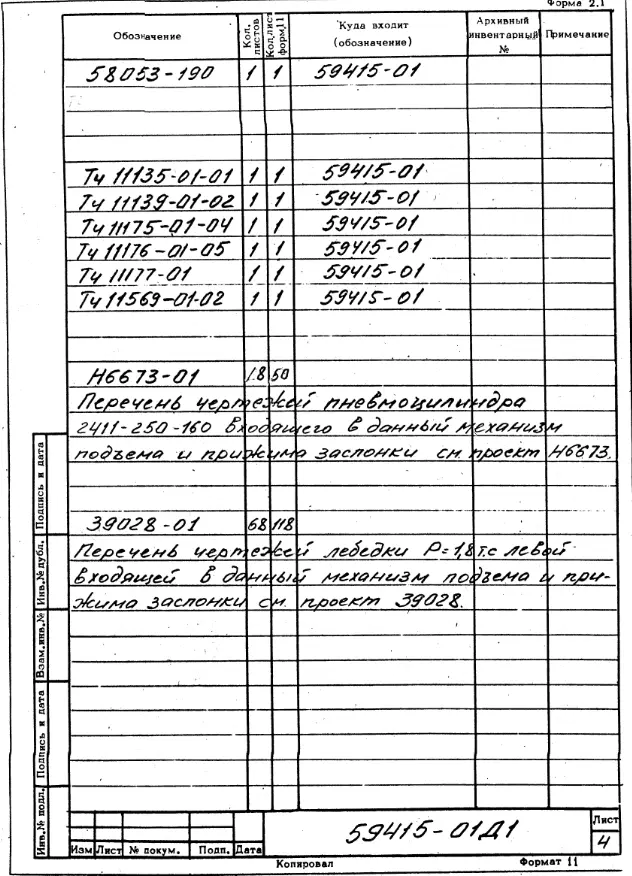 Форма 2.1
Обозначение Кол. листов Кол.лист форм.11 Куда входит (обозначение) Архивный инвентарный № Примечание
58053-190 1 1 59415-01
Тч 11135-01-01 1 1 59415-01
Тч 11139-01-02 1 1 59415-01
Тч 11175-01-04 1 1 59415-01
Тч 11176-01-05 1 1 59415-01
Тч 11177-01 1 1 59415-01
Тч 11569-01-02 1 1 59415-01
Н6673-01 18 50
Перечень чертежей пневмоцилиндра
2411-250-160 входящего в данный механизм
подъема и прижима заслонки см. проект Н6673.
39028-01 68 118
Перечень чертежей лебедки Р=1,8 т.с левой
входящей в данный механизм подъема и при-
жима заслонки см. проект 39028.
Инв.№ подл. Подпись и дата Взам.инв.№ Инв.№ дубл. Подпись и дата
59415-01Д1
Лист
4
Изм Лист № докум. Подп. Дата
Копировал Формат 11